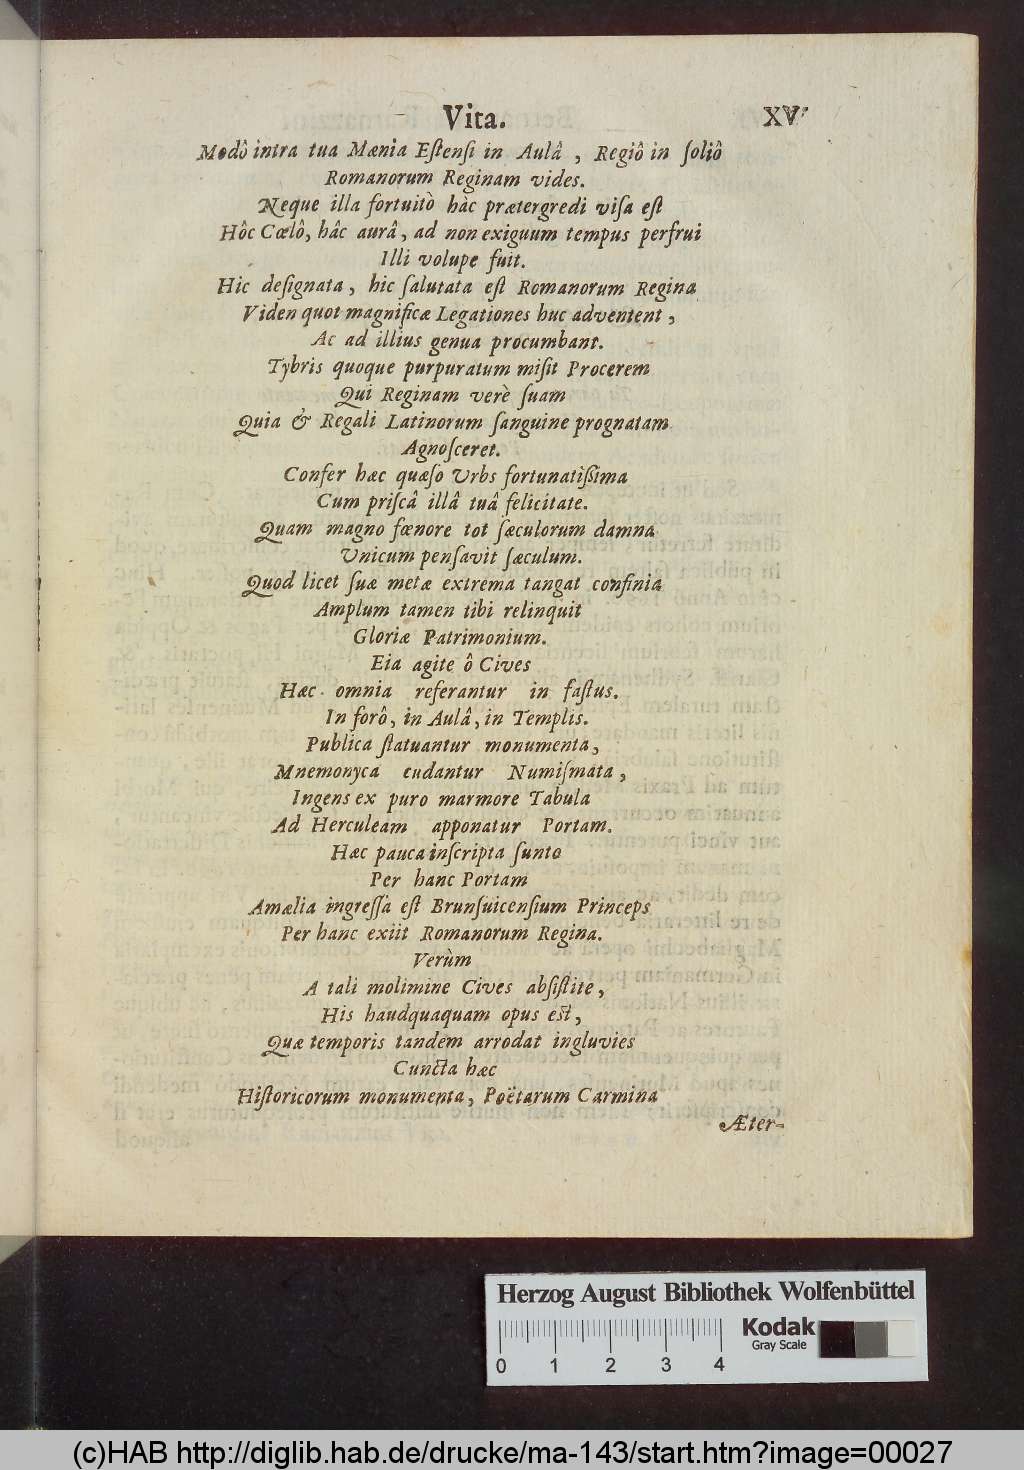 Vita. XV
Modô intra tua Mænia Eſtenſi in Aulâ , Regiô in ſoliô
Romanorum Reginam vides.
Neque illa fortuitò hàc prætergredi viſa eſt
Hôc Cœlô, hâc aurâ, ad non exiguum tempus perfrui
Illi volupe fuit.
Hic deſignata, hic ſalutata eſt Romanorum Regina
Viden quot magnificæ Legationes huc adventent ,
Ac ad illius genua procumbant.
Tybris quoque purpuratum miſit Procerem
Qui Reginam verè ſuam
Quia & Regali Latinorum ſanguine prognatam
Agnoſceret.
Confer hæc quæſo Urbs fortunatiſſima
Cum priſcâ illâ tuâ felicitate.
Quam magno fœnore tot ſæculorum damna
Unicum penſavit ſæculum.
Quod licet ſuæ metæ extrema tangat confinia
Amplum tamen tibi relinquit
Gloriæ Patrimonium.
Eia agite ô Cives
Hæc omnia referantur in faſtus.
In forô, in Aulâ, in Templis.
Publica ſtatuantur monumenta,
Mnemonyca cudantur Numiſmata ,
Ingens ex puro marmore Tabula
Ad Herculeam apponatur Portam.
Hæc pauca inſcripta ſunto
Per hanc Portam
Amælia ingreſſa eſt Brunſuicenſium Princeps
Per hanc exiit Romanorum Regina.
Verùm
A tali molimine Cives abſiſtite ,
His haudquaquam opus eſt,
Quæ temporis tandem arrodat ingluvies
Cuncta hæc
Hiſtoricorum monumenta, Poëtarum Carmina
Æter-
Herzog August Bibliothek Wolfenbüttel
Kodak
Gray Scale
0 1 2 3 4
(c)HAB http://diglib.hab.de/drucke/ma-143/start.htm?image=00027